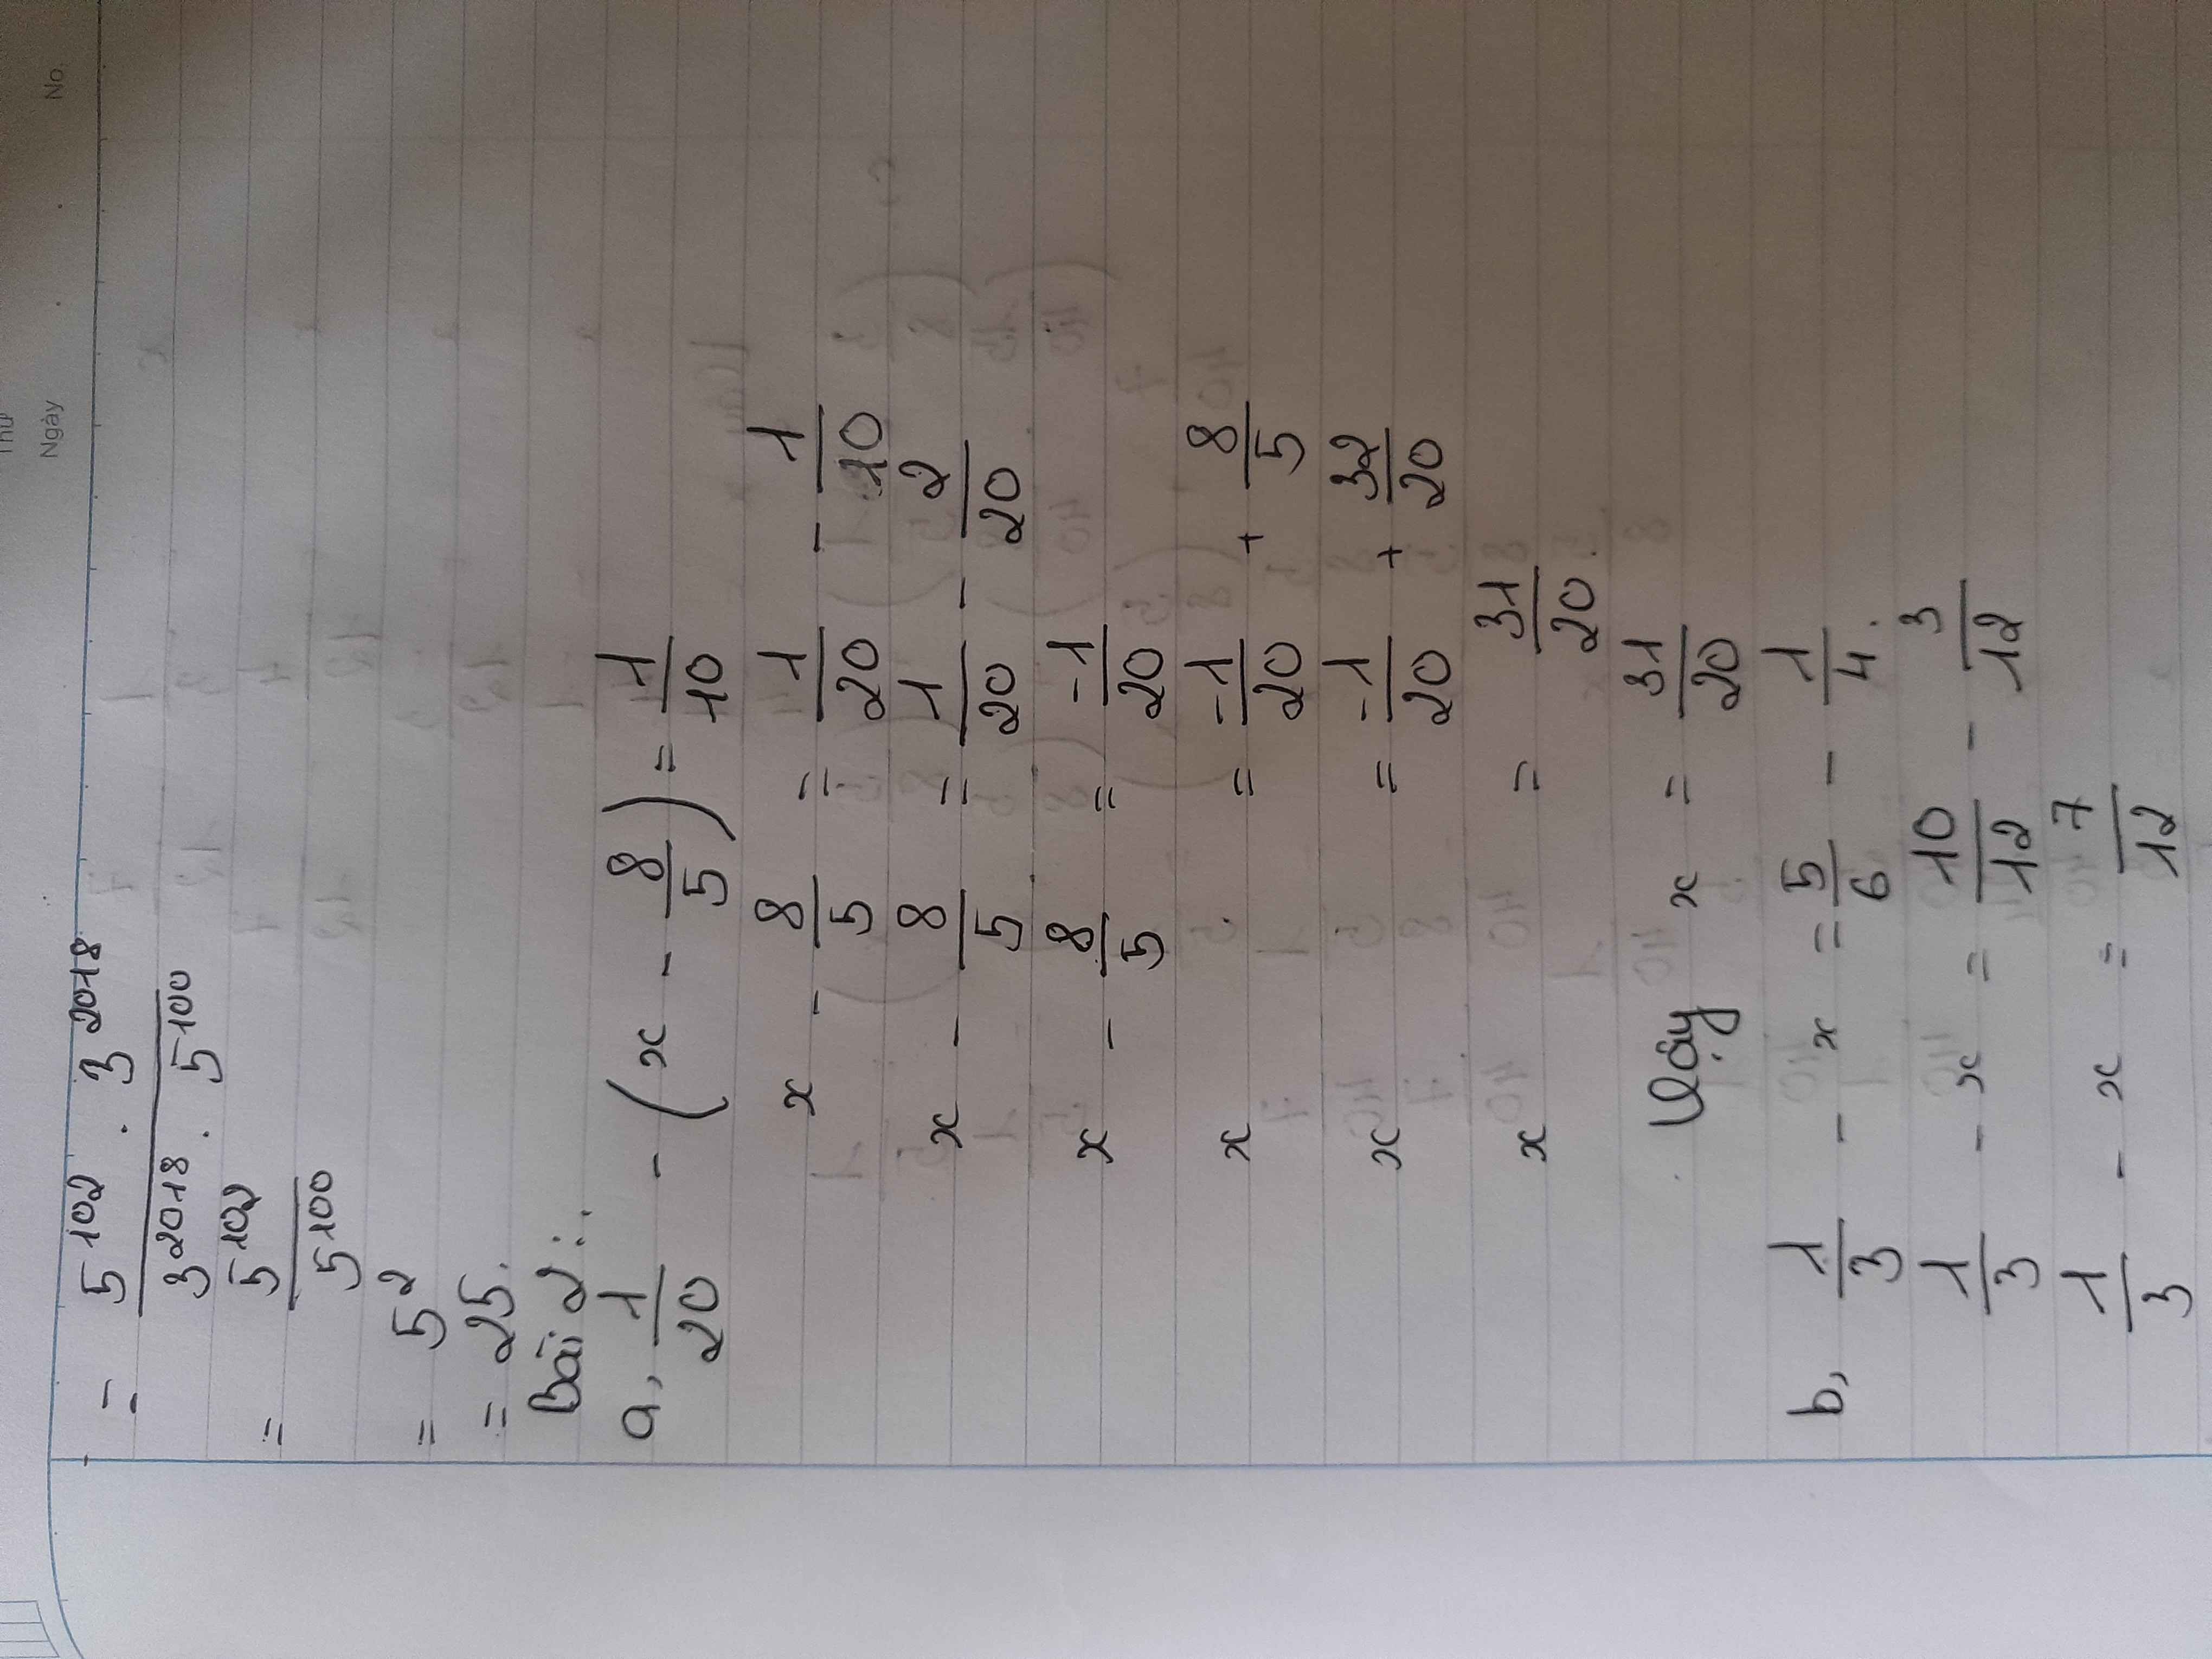 Thứ
Ngày No.
= 5^102 . 3^2018 / 3^2018 . 5^100
= 5^102 / 5^100
= 5^2
= 25.
Bài 2:
a, 1/20 - (x - 8/5) = 1/10
x - 8/5 = 1/20 - 1/10
x - 8/5 = 1/20 - 2/20
x - 8/5 = -1/20
x = -1/20 + 8/5
x = -1/20 + 32/20
x = 31/20.
Vậy x = 31/20
b, 1/3 - x = 5/6 - 1/4.
1/3 - x = 10/12 - 3/12
1/3 - x = 7/12